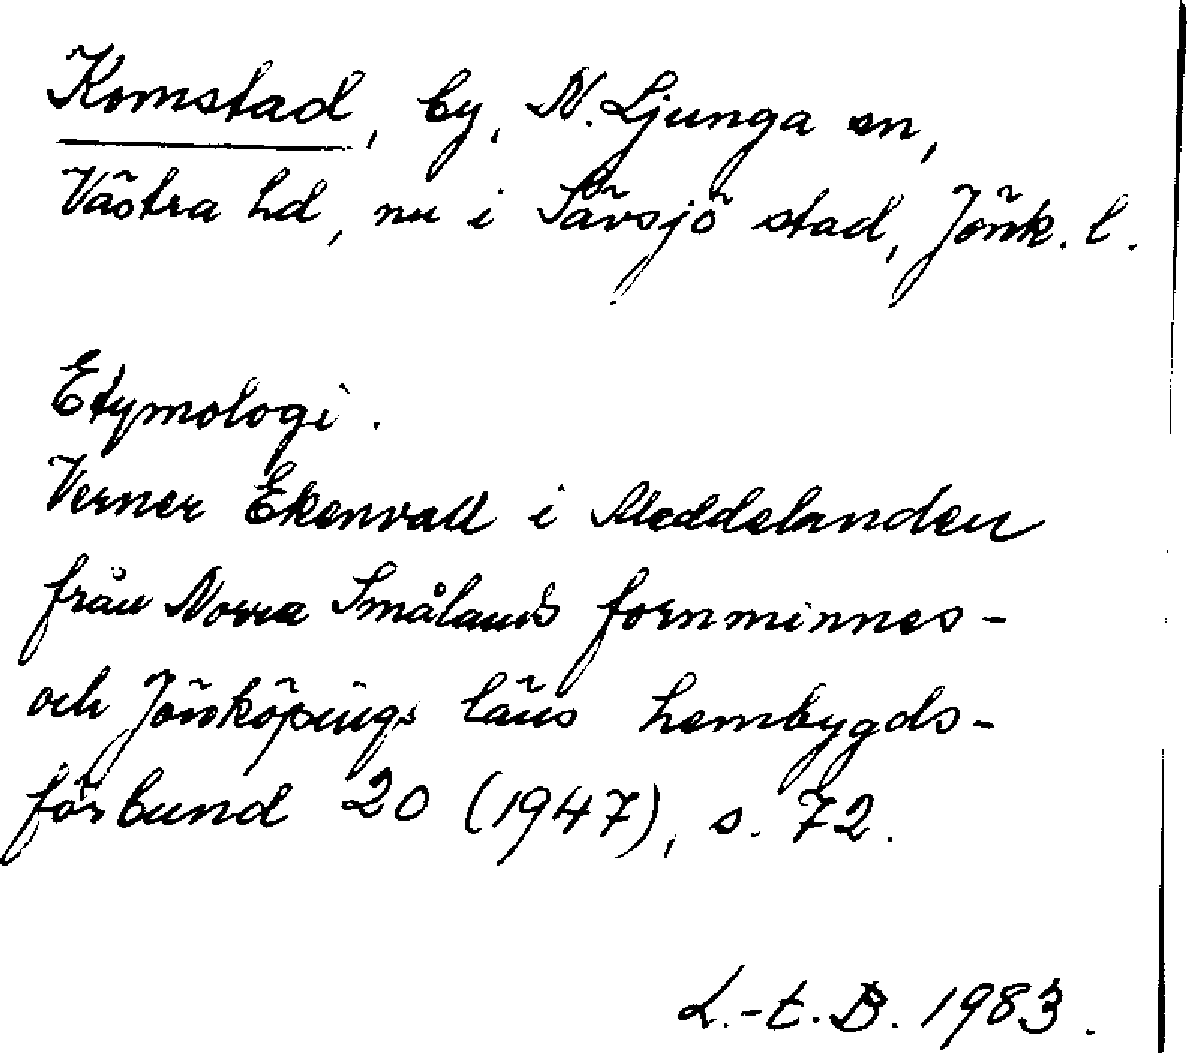 Komstad, by, N. Ljunga sn,
Västra hd, nu i Sävsjö stad, Jönk. l.
Etymologi.
Verner Ekenvall i Meddelanden
från Norra Smålands fornminnes-
och Jönköpings läns hembygds-
förbund 20 (1947), s. 72.
L.-t. B. 1983.